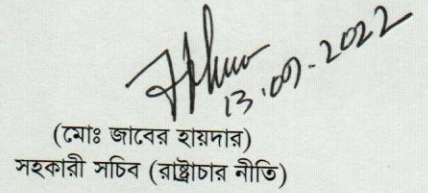 13.09.2022
(মোঃ জাবের হায়দার)
সহকারী সচিব (রাষ্ট্রাচার নীতি)